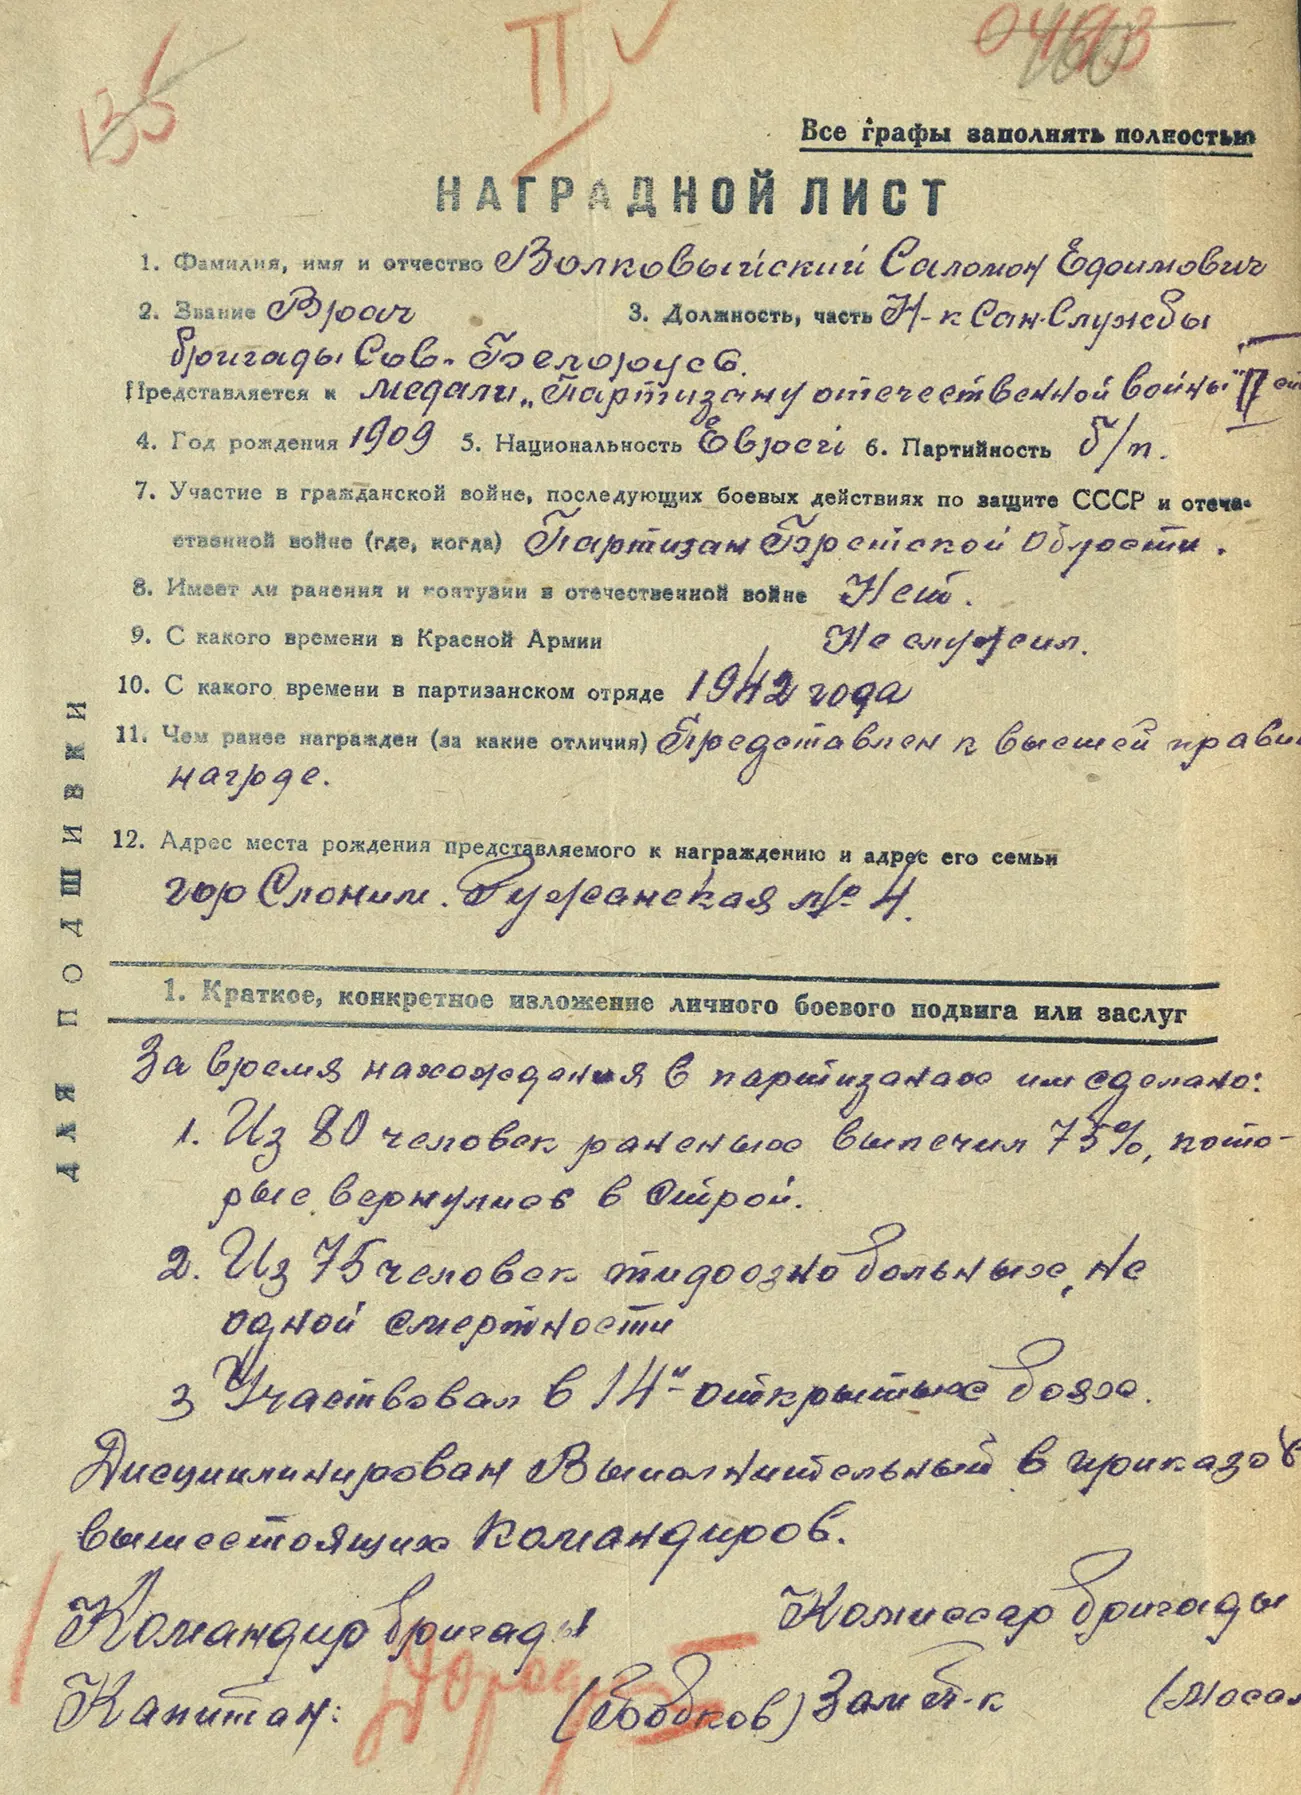 135
II
0493
160
Все графы заполнять полностью
НАГРАДНОЙ ЛИСТ
1. Фамилия, имя и отчество Волковыйский Саломон Ефимович
2. Звание Врач 3. Должность, часть Н-к Сан-Службы
бригады Сов. Белорусь.
Представляется к медали „Партизану отечественной войны" II ст
4. Год рождения 1909 5. Национальность Еврей 6. Партийность б/п.
7. Участие в гражданской войне, последующих боевых действиях по защите СССР и отече-
ственной войне (где, когда) Партизан Брестской Области.
8. Имеет ли ранения и контузии в отечественной войне Нет.
9. С какого времени в Красной Армии Не служил.
10. С какого времени в партизанском отряде 1942 года
11. Чем ранее награжден (за какие отличия) Представлен к высшей прави
награде.
12. Адрес места рождения представляемого к награждению и адрес его семьи
гор Слоним. Ружанская № 4.
ДЛЯ ПОДШИВКИ
1. Краткое, конкретное изложение личного боевого подвига или заслуг
За время нахождения в партизанах им сделано:
1. Из 80 человек раненых вылечил 75%, кото-
рые вернулись в строй.
2. Из 75 человек тифозно больных, не
одной смертности
3 Участвовал в 14и- открытых боях.
Дисциплинирован Выполнительный в приказов
вышестоящих командиров.
Командир бригады Комиссар бригады
Капитан: (Бобков) Зам б-к (Моса